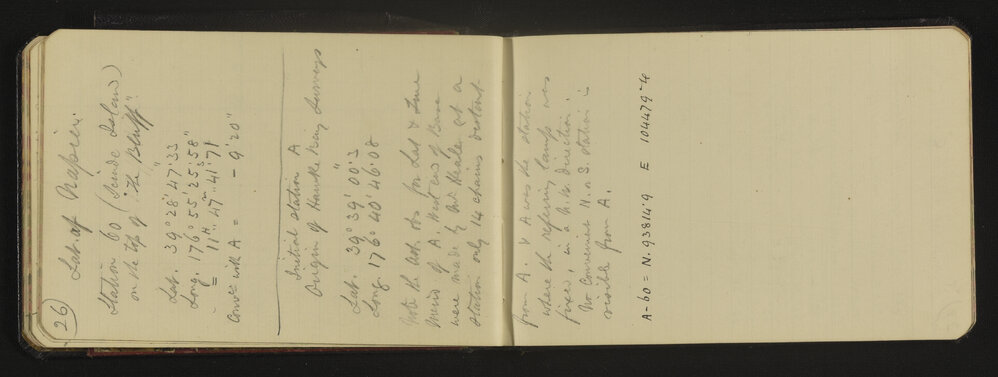 26
Lat. of Napier.
Station 60 (Scinde Island)
on the top of "The Bluff"
Lat. 39° 28' 47".33
Long. 176° 55' 25".58
= 11ᴴ 47ᵐ 41ˢ.71
Conv^ce with A = - 9' 20"
Initial Station A
Origin of Hawke's Bay Surveys
Lat. 39° 39' 00".3
Long 176° 40' 46".08
Note the Ast. obs for Lat & Time
Merid of A. West end of Base
were made by Mr Heale at a
station only 14 chains distant
from A. & A was the station
where the referring lamp was
fixed, in a N.W. direction.
No Convenient N. or S station is
visible from A.
A-60 = N. 93814.9 E 104479.4